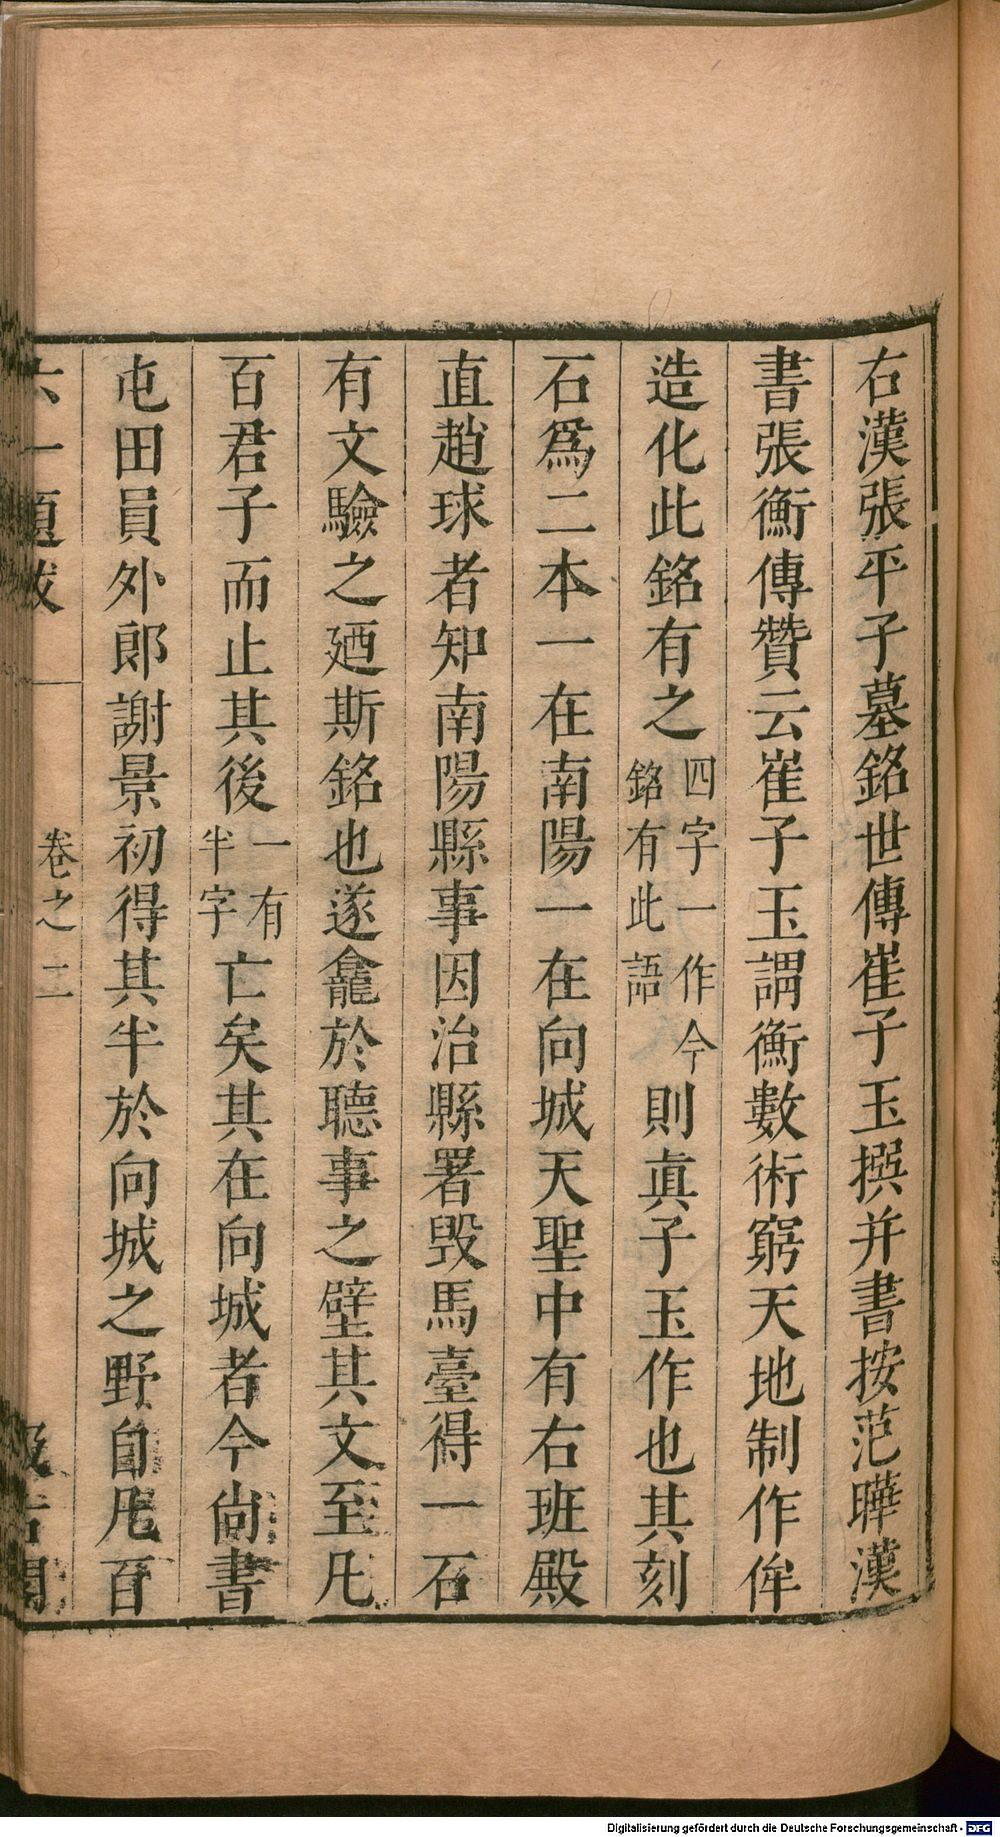 右漢張平子墓銘世傳崔子玉撰并書按范曄漢
書張衡傳贊云崔子玉謂衡數術窮天地制作侔
造化此銘有之四字一作今銘有此語則眞子玉作也其刻
石爲二本一在南陽一在向城天聖中有右班殿
直趙球者知南陽縣事因治縣署毀馬臺得一石
有文驗之廼斯銘也遂龕於聽事之壁其文至凡
百君子而止其後一有半字亡矣其在向城者今尚書
屯田員外郎謝景初得其半於向城之野自凡百
六一題跋 卷之二 汲古閣
Digitalisierung gefördert durch die Deutsche Forschungsgemeinschaft - DFG